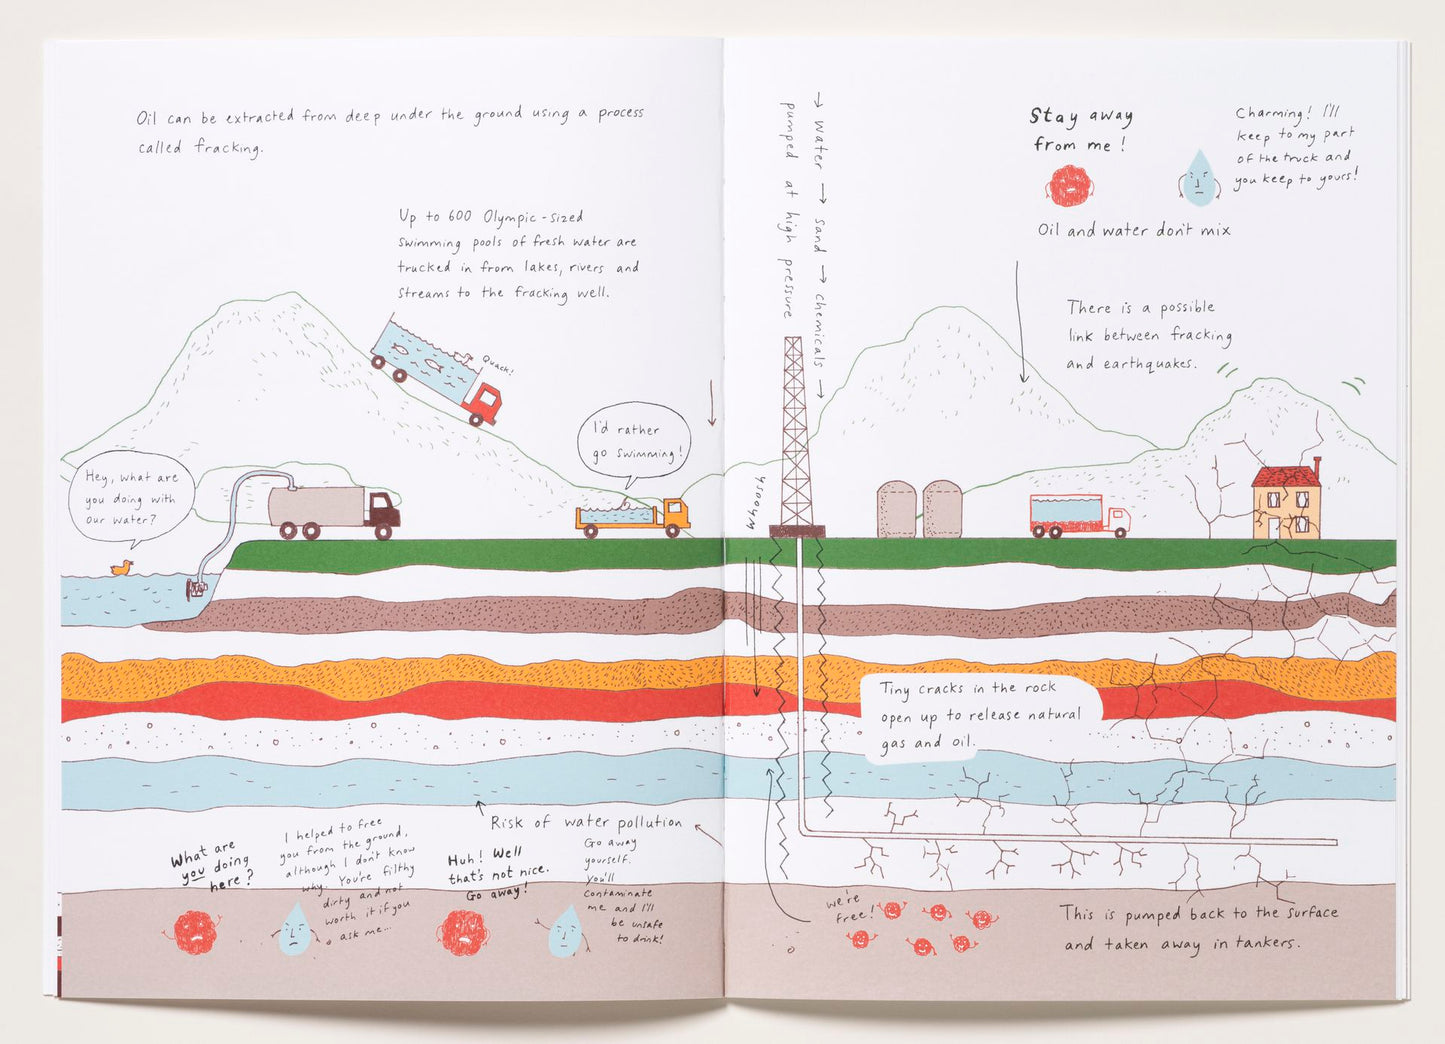 Oil can be extracted from deep under the ground using a process
called fracking.
Up to 600 Olympic-sized
swimming pools of fresh water are
trucked in from lakes, rivers and
streams to the fracking well.
Quack!
I'd rather
go swimming!
Hey, what are
you doing with
our water?
Risk of water pollution
What are
you doing
here?
I helped to free
you from the ground,
although I don't know
why. You're filthy
dirty and not
worth it if you
ask me...
Huh! Well
that's not nice.
Go away!
Go away
yourself.
You'll
contaminate
me and I'll
be unsafe
to drink!
→ water → sand → chemicals →
pumped at high pressure
whoosh
Stay away
from me!
Charming! I'll
keep to my part
of the truck and
you keep to yours!
Oil and water don't mix
There is a possible
link between fracking
and earthquakes.
Tiny cracks in the rock
open up to release natural
gas and oil.
we're
free!
This is pumped back to the surface
and taken away in tankers.